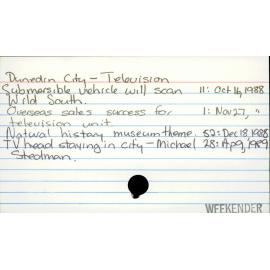 Dunedin City – Television
Submersible vehicle will scan 11: Oct 16, 1988
Wild South.
Overseas sales success for 1: Nov 27, "
television unit.
Natural history museum theme. 52: Dec 18 1988
TV head staying in city – Michael 28: Apr 9, 1989
Stedman.
WEEKENDER